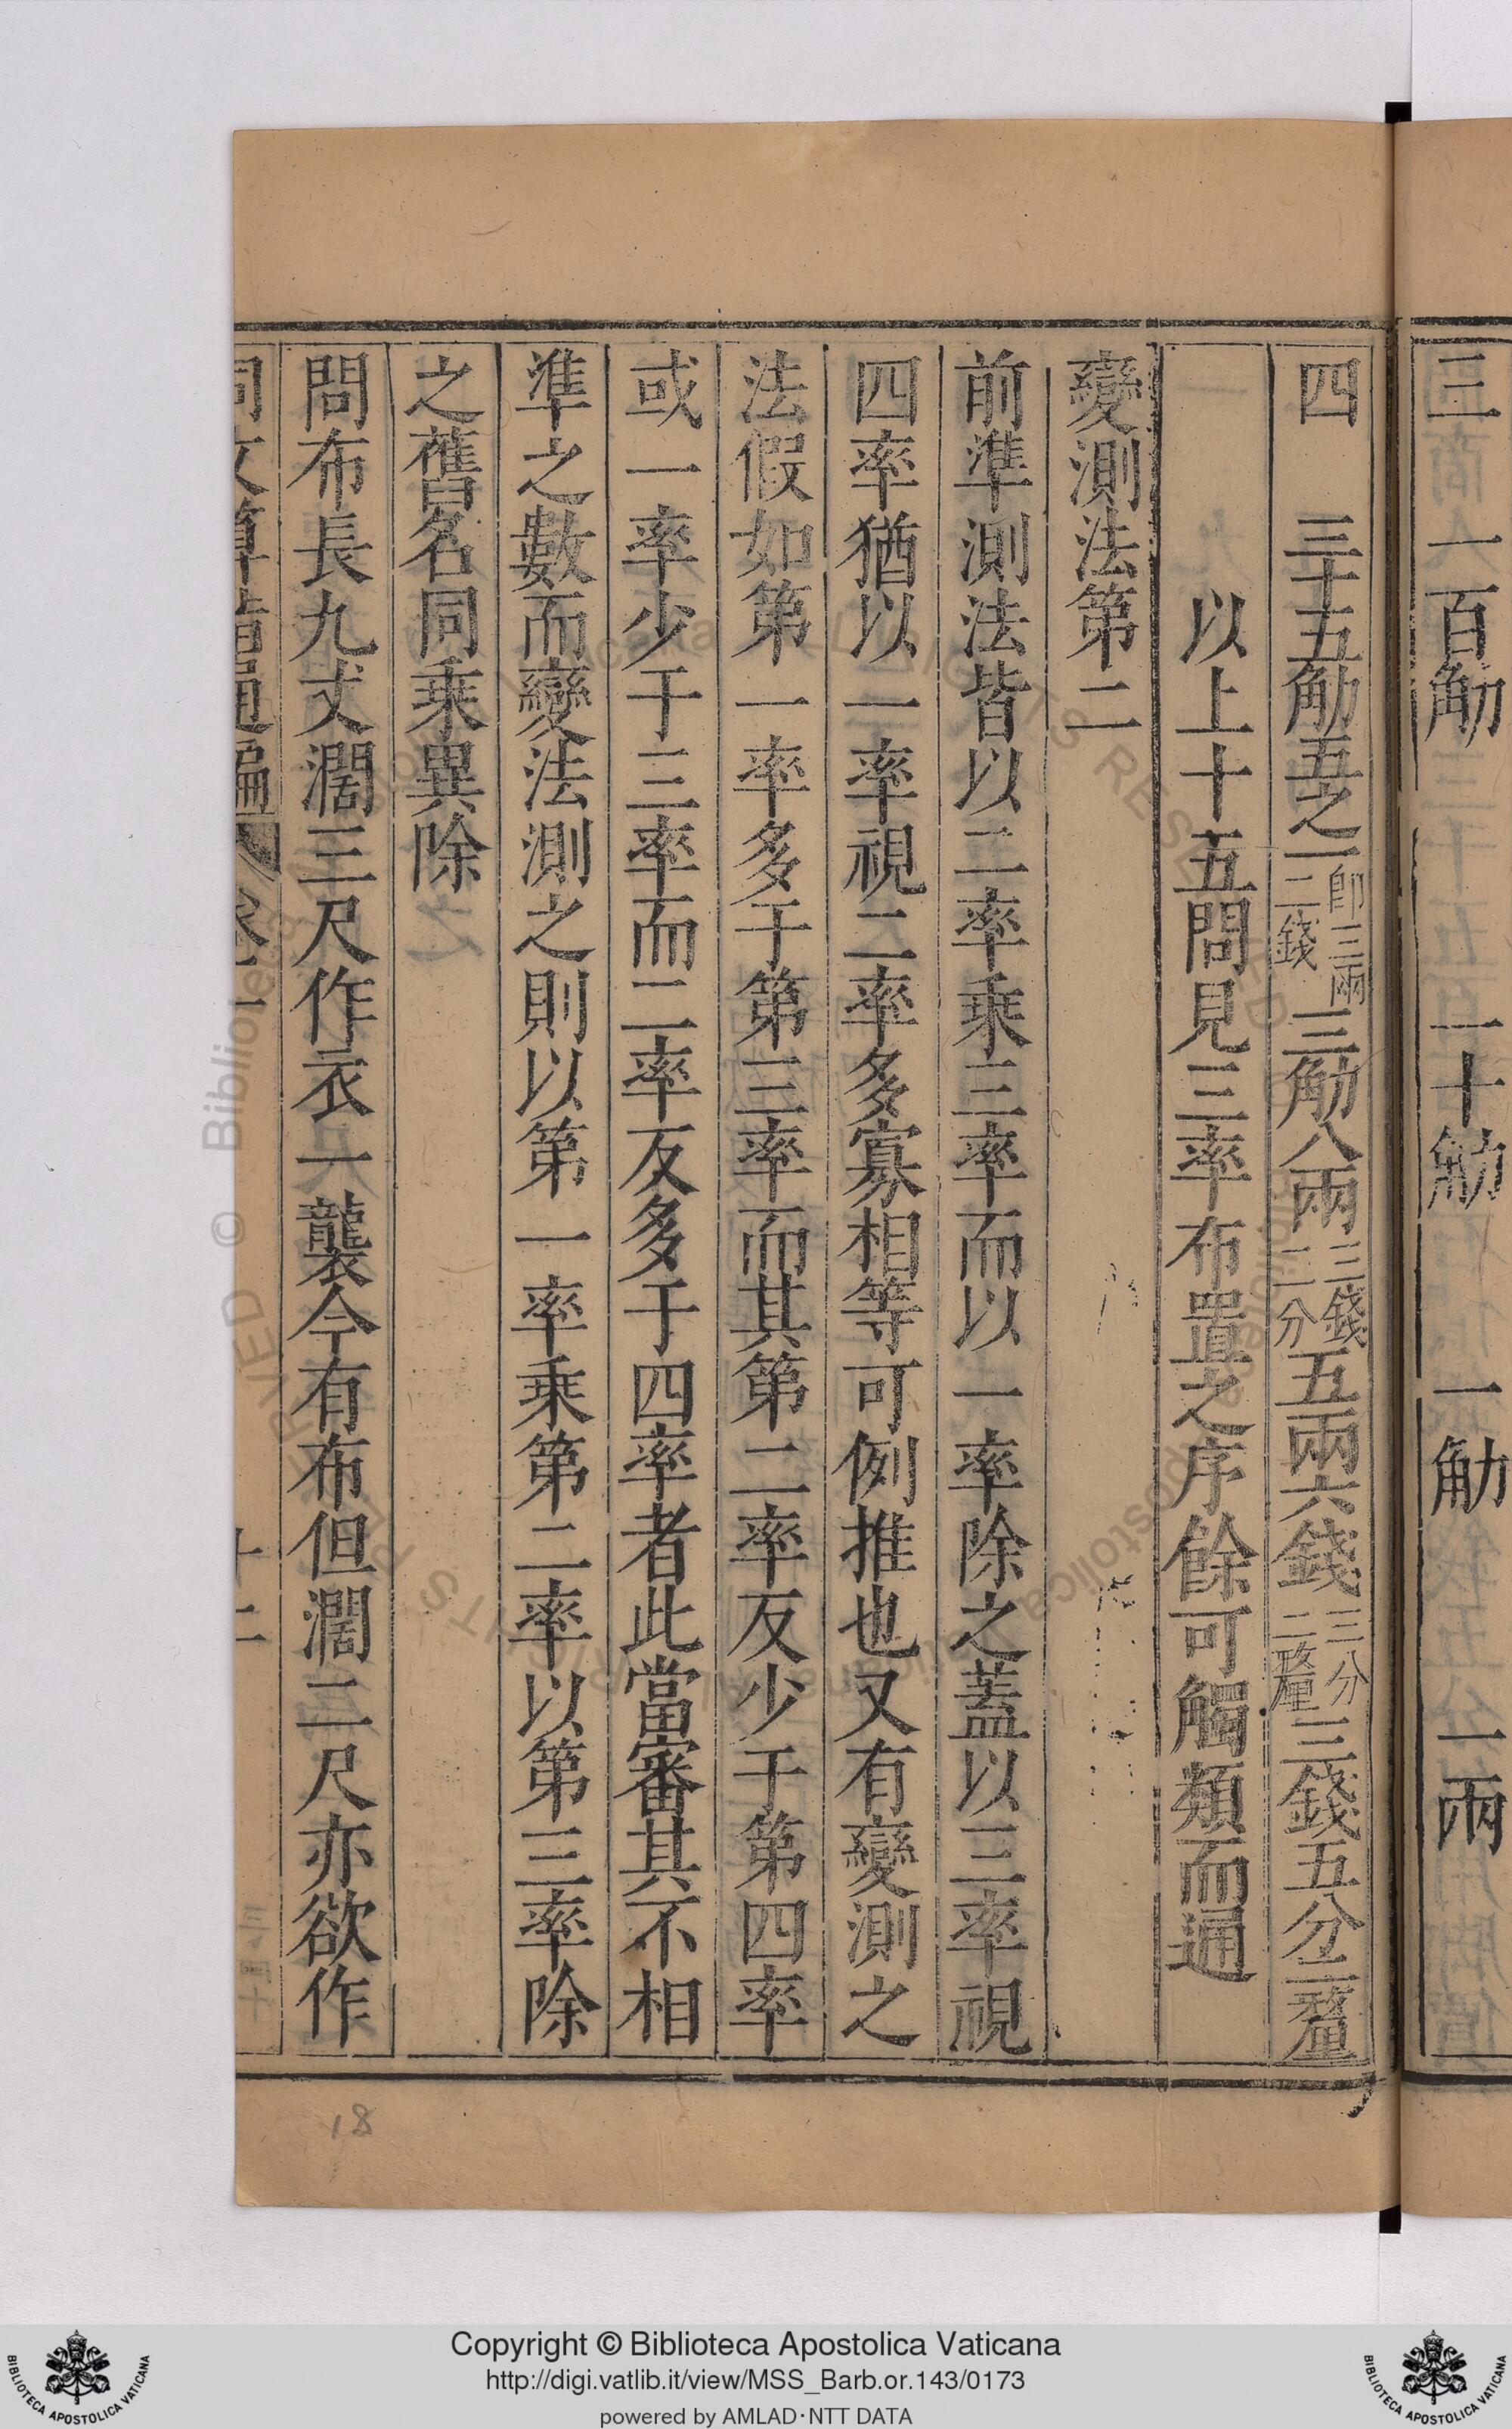 三 一百觔 一十觔 一觔 一兩
四 三十五觔五之一即三兩二錢三觔八兩三錢二分五兩六錢三分二釐三錢五分三釐
以上十五問見三率布置之序餘可觸類而通
變測法第二
前準測法皆以二率乘三率而以一率除之葢以三率視
四率猶以一率視二率多寡相等可例推也又有變測之
法假如第一率多于第三率而其第二率反少于第四率
或一率少于三率而二率反多于四率者此當審其不相
準之數而變法測之則以第一率乘第二率以第三率除
之舊名同乘異除
問布長九丈濶三尺作衣一襲今有布但濶二尺亦欲作
同文算指通編 卷一 十二
18
Copyright © Biblioteca Apostolica Vaticana
http://digi.vatlib.it/view/MSS_Barb.or.143/0173
powered by AMLAD·NTT DATA
BIBLIOTECA APOSTOLICA VATICANA
BIBLIOTECA APOSTOLICA VATICANA